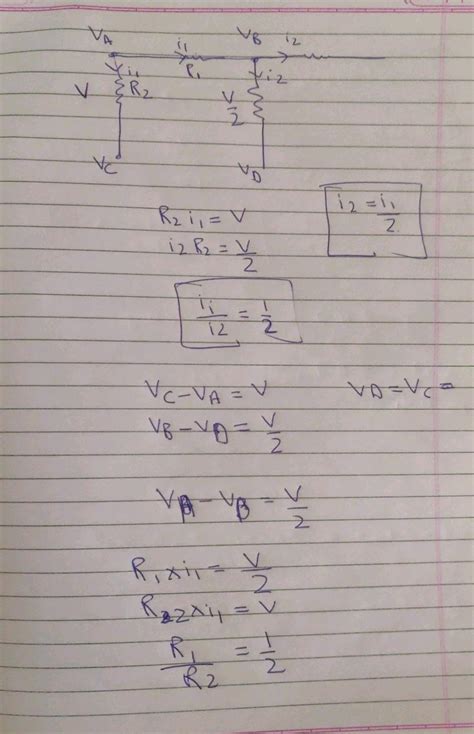 VA i1 VB i2
i1 R1 i2
V R2 V/2
VC VD
R2 i1 = V
i2 = i1/2
i2 R2 = V/2
i1/i2 = 1/2
VC - VA = V VD = VC =
VB - VD = V/2
VA - VB = V/2
R1 x i1 = V/2
R2 x i1 = V
R1/R2 = 1/2